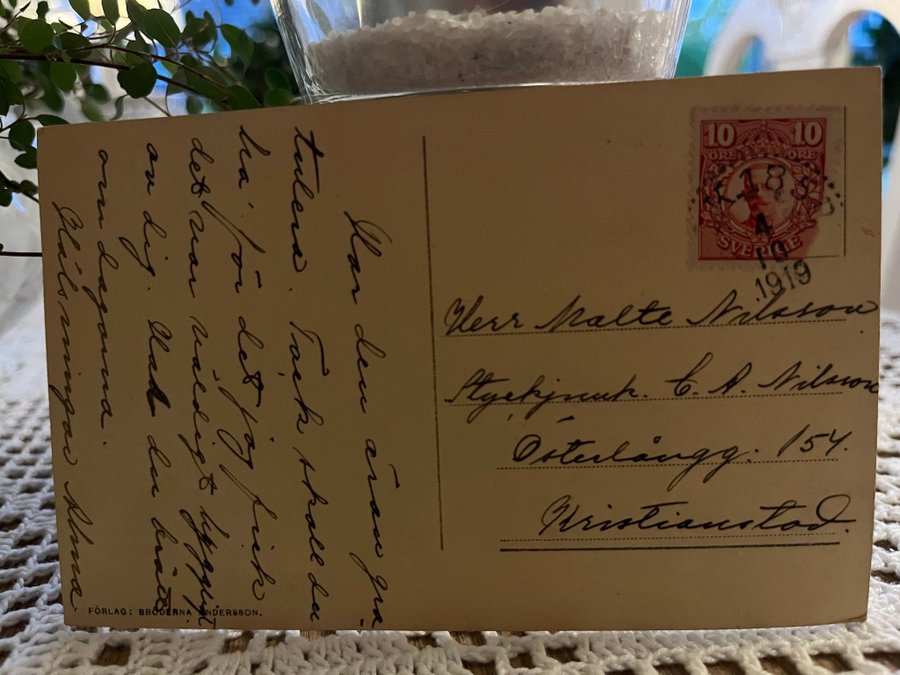 Har den äran gra
tulera. Tack skall du
ha för det jag fick
det var väldigt byggt
av dig. Vad du
om dagarna.
Hälsningar Alma
FÖRLAG: BRÖDERNA ANDERSSON.
10 10
ÖRE ÖRE
SVERIGE
4
10
1919
Herr Malte Nilsson
C. A. Nilsson
Österlångg. 154.
Kristianstad.